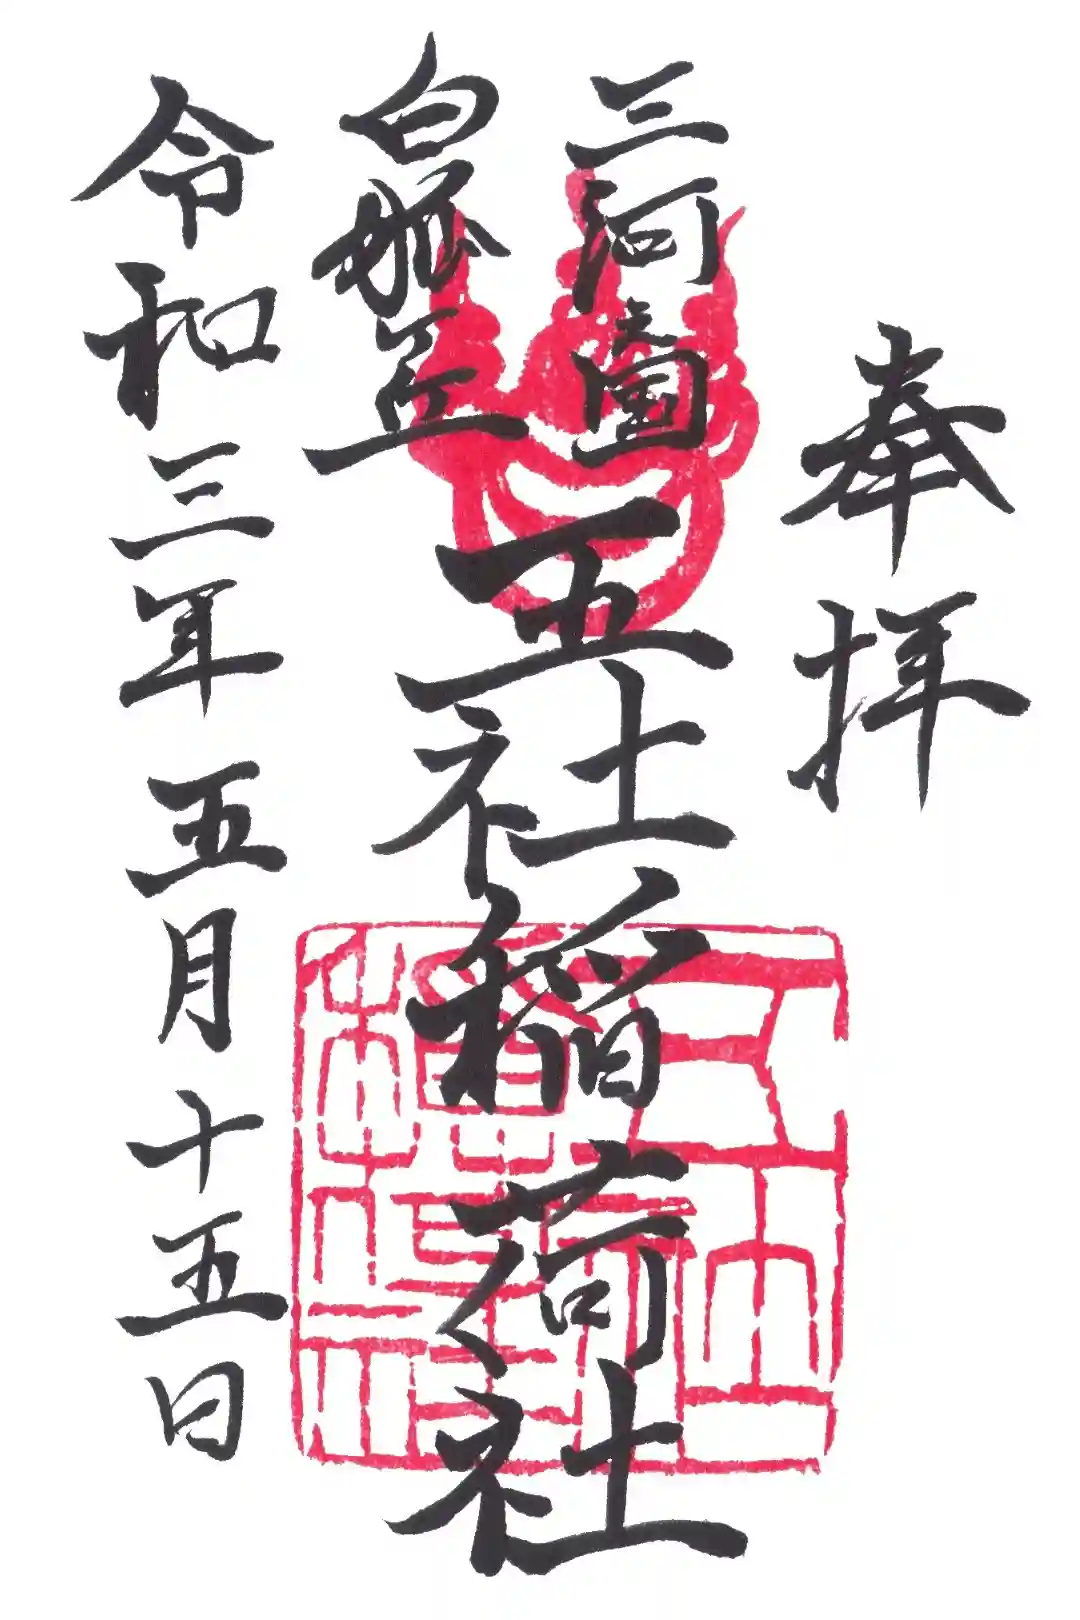 奉拝
三河國
白狐
五社稲荷社
令和三年五月十五日